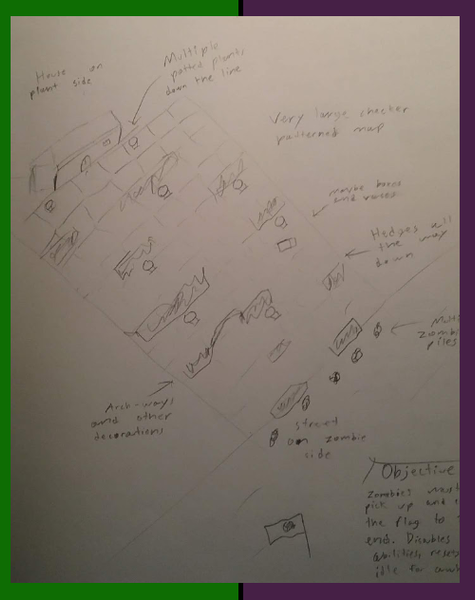 House on
plant side
Multiple
potted plants
down the line
Very large checker
patterned map
maybe boxes
and vases
Hedges all
the way
down
Multi
Zombie
piles
Arch-ways
and other
decorations
street
on zombie
side
Objective
Zombies must
pick up and
the flag to
end. Disables
abilities, resets
idle for